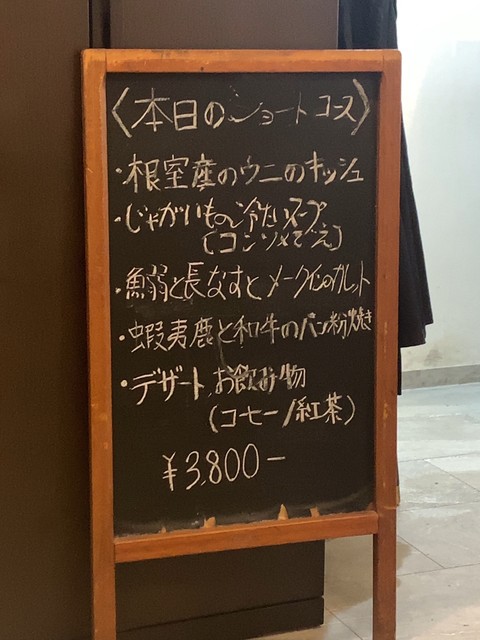 〈本日のショートコース〉
・根室産のウニのキッシュ
・じゃがいもの冷たいスープ
(コンソメジュレ)
・魚弱と長なすとメークインのガレット
・蝦夷鹿と和牛のパン粉焼き
・デザート、お飲み物
(コーヒー/紅茶)
¥3,800-